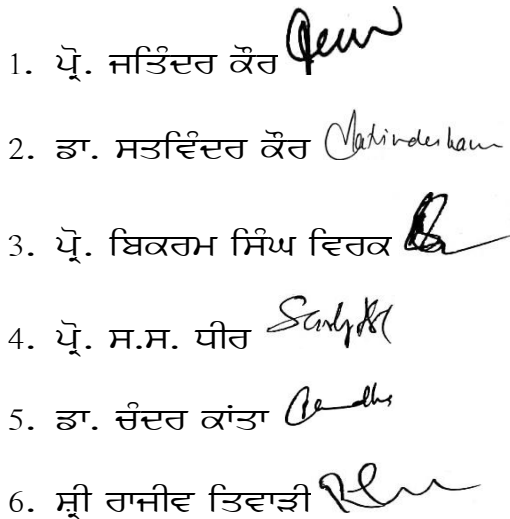 1. ਪ੍ਰੋ. ਜਤਿੰਦਰ ਕੌਰ
2. ਡਾ. ਸਤਵਿੰਦਰ ਕੌਰ
3. ਪ੍ਰੋ. ਬਿਕਰਮ ਸਿੰਘ ਵਿਰਕ
4. ਪ੍ਰੋ. ਸ.ਸ. ਧੀਰ
5. ਡਾ. ਚੰਦਰ ਕਾਂਤਾ
6. ਸ਼੍ਰੀ ਰਾਜੀਵ ਤਿਵਾੜੀ